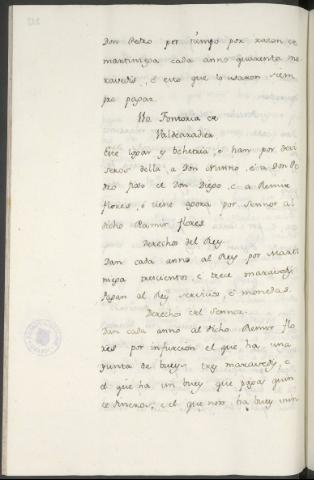 Don Pedro per tiempo por razon de
martiniega cada anno quarenta ma
ravedis, e esto que lo usaron siem
pre pagar.
Fontoria de
Valdearados
Este logar es behetria, e han por devi
seros della, a Don Nunno, e a Don Pe
dro fijo de Don Diego, e a Remir
flores, e tiene agora por Sennor al
dicho Ramir flores
Derechos del Rey.
Dan cada anno al Rey por Marti
niega trescientos, e trece maravedis.
Pagan al Rey servicios, e monedas.
Derechos del Sennor.
Dan cada anno al dicho Remir flo
res por infurcion el que ha una
yunta de bueys tres maravedis, e
el que ha un buey que pagan quin
ce dineros, e el que non ha buey nin